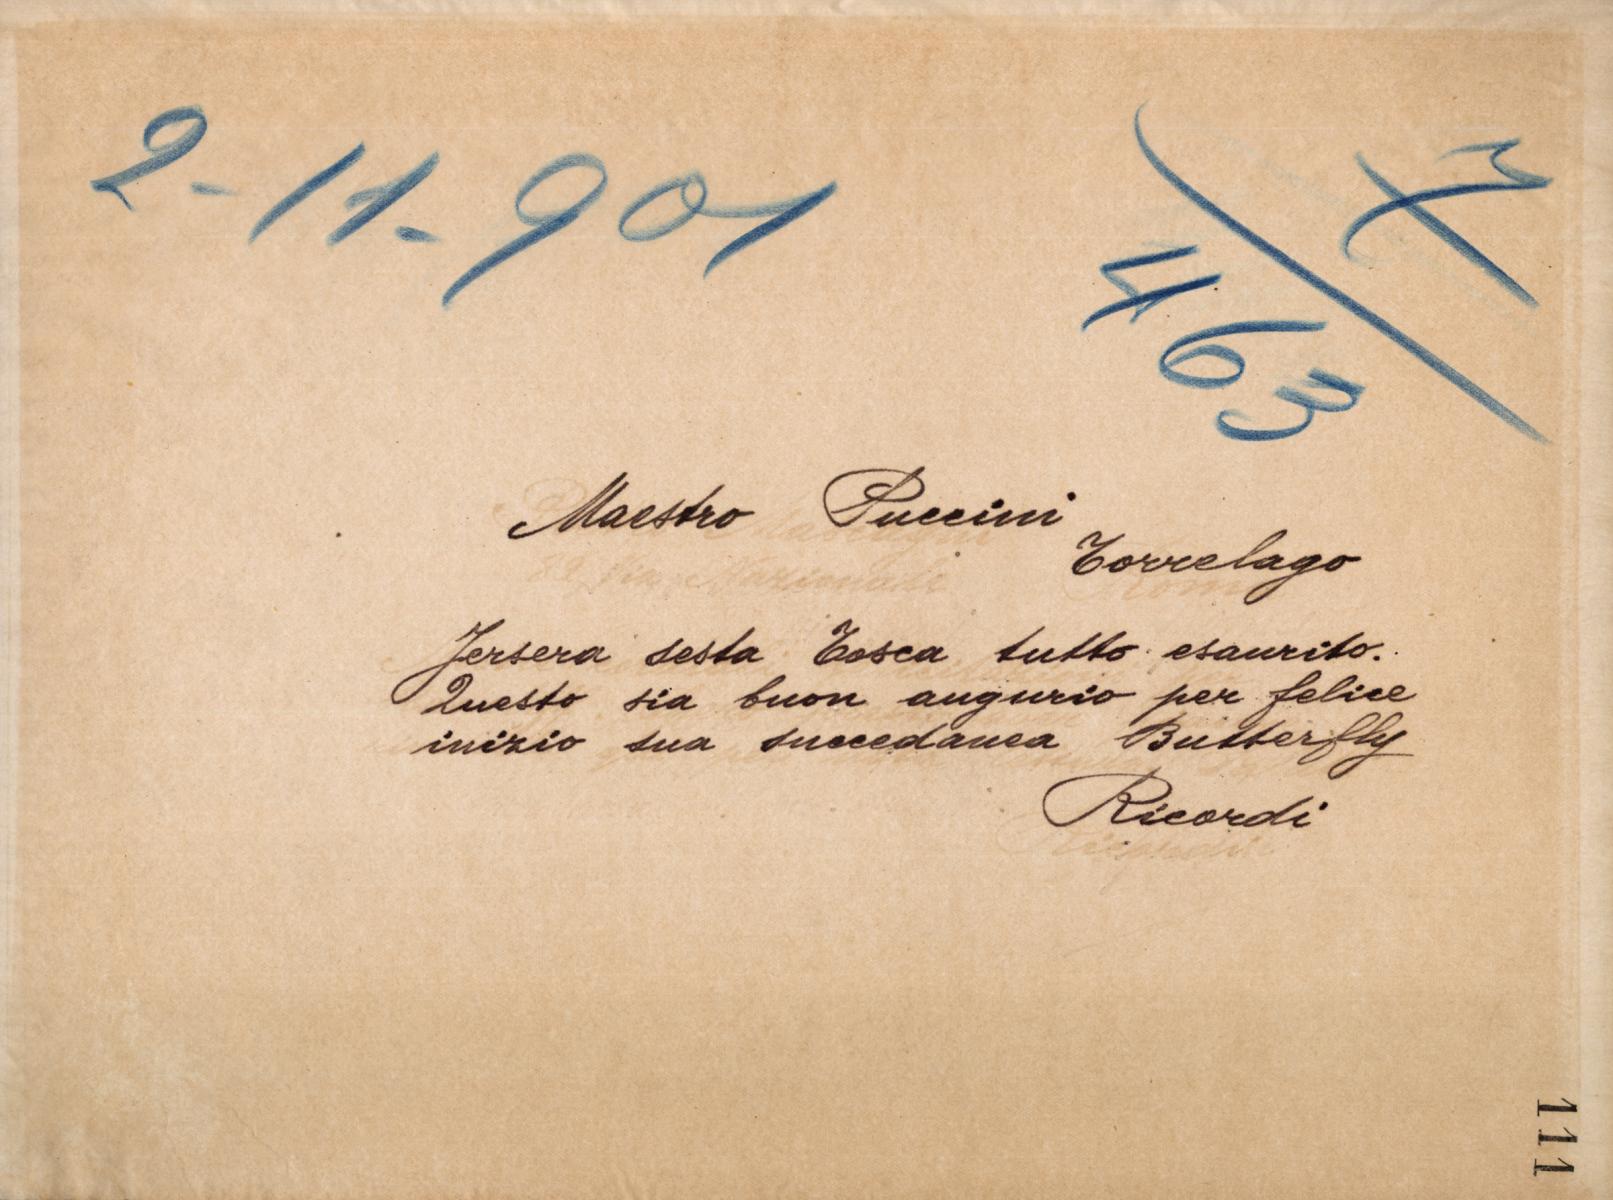 2-11-901
4
463
Maestro Puccini
Torrelago
Jersera sesta Tosca tutto esaurito.
Questo sia buon augurio per felice
inizio sua succedanea Butterfly
Ricordi
111